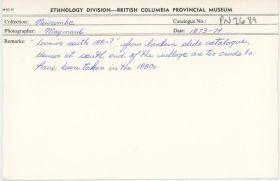 ETHNOLOGY DIVISION—BRITISH COLUMBIA PROVINCIAL MUSEUM
Collection: Newcombe Catalogue No.: PN2689
Photographer: Maynard Date: 1873-74
Remarks: "Looking south 188-?" from lantern slide catalogue,
houses at south end of the village are too crude to
have been taken in the 1880s.